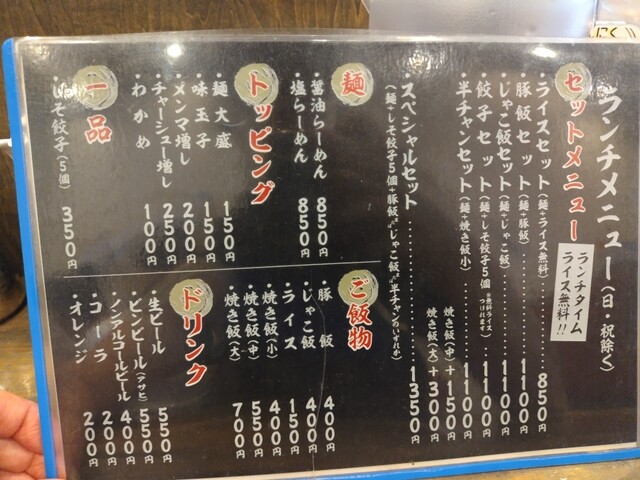 ランチメニュー(日・祝除く)
ランチタイム
ライス無料!!
セットメニュー
・ライスセット(麺+ライス無料)……850円
・豚飯セット(麺+豚飯)……1100円
・じゃこ飯セット(麺+じゃこ飯)……1100円
・餃子セット(麺+しそ餃子5個+無料ライスつけれます)……1100円
・半チャンセット(麺+焼き飯小)……1100円
焼き飯(中)+150円
焼き飯(大)+300円
・スペシャルセット……1350円
(麺+しそ餃子5個+豚飯orじゃこ飯or半チャンのいずれか)
麺
・醤油らーめん 850円
・塩らーめん 850円
トッピング
・麺大盛 150円
・味玉子 150円
・メンマ増し 200円
・チャーシュー増し 250円
・わかめ 100円
一品
・しそ餃子(5個) 350円
ご飯物
・豚飯 400円
・じゃこ飯 400円
・ライス 150円
・焼き飯(小) 400円
・焼き飯(中) 550円
・焼き飯(大) 700円
ドリンク
・生ビール 550円
・ビンビール(アサヒ) 550円
・ノンアルコールビール 400円
・コーラ 200円
・オレンジ 200円